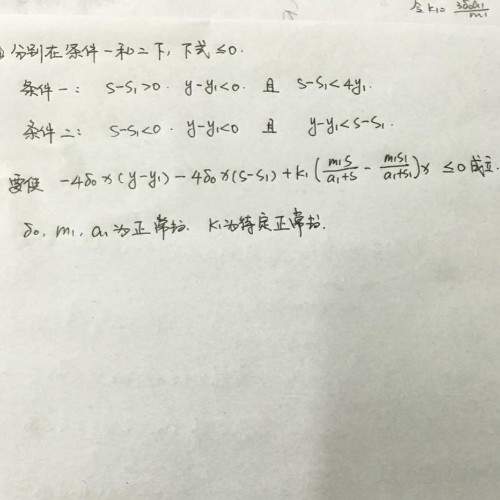 令 k₁ =
m₁
分别在条件一和二下, 下式 ≤0.
条件一: S-S₁>0. y-y₁<0. 且 S-S₁<4y₁.
条件二: S-S₁<0. y-y₁<0 且 y-y₁<S-S₁.
要使 -4δ₀x(y-y₁)-4δ₀x(S-S₁)+k₁(m₁S/(a₁+S) - m₁S₁/(a₁+S₁))x ≤0成立.
δ₀, m₁, a₁为正常数. k₁为待定正常数.